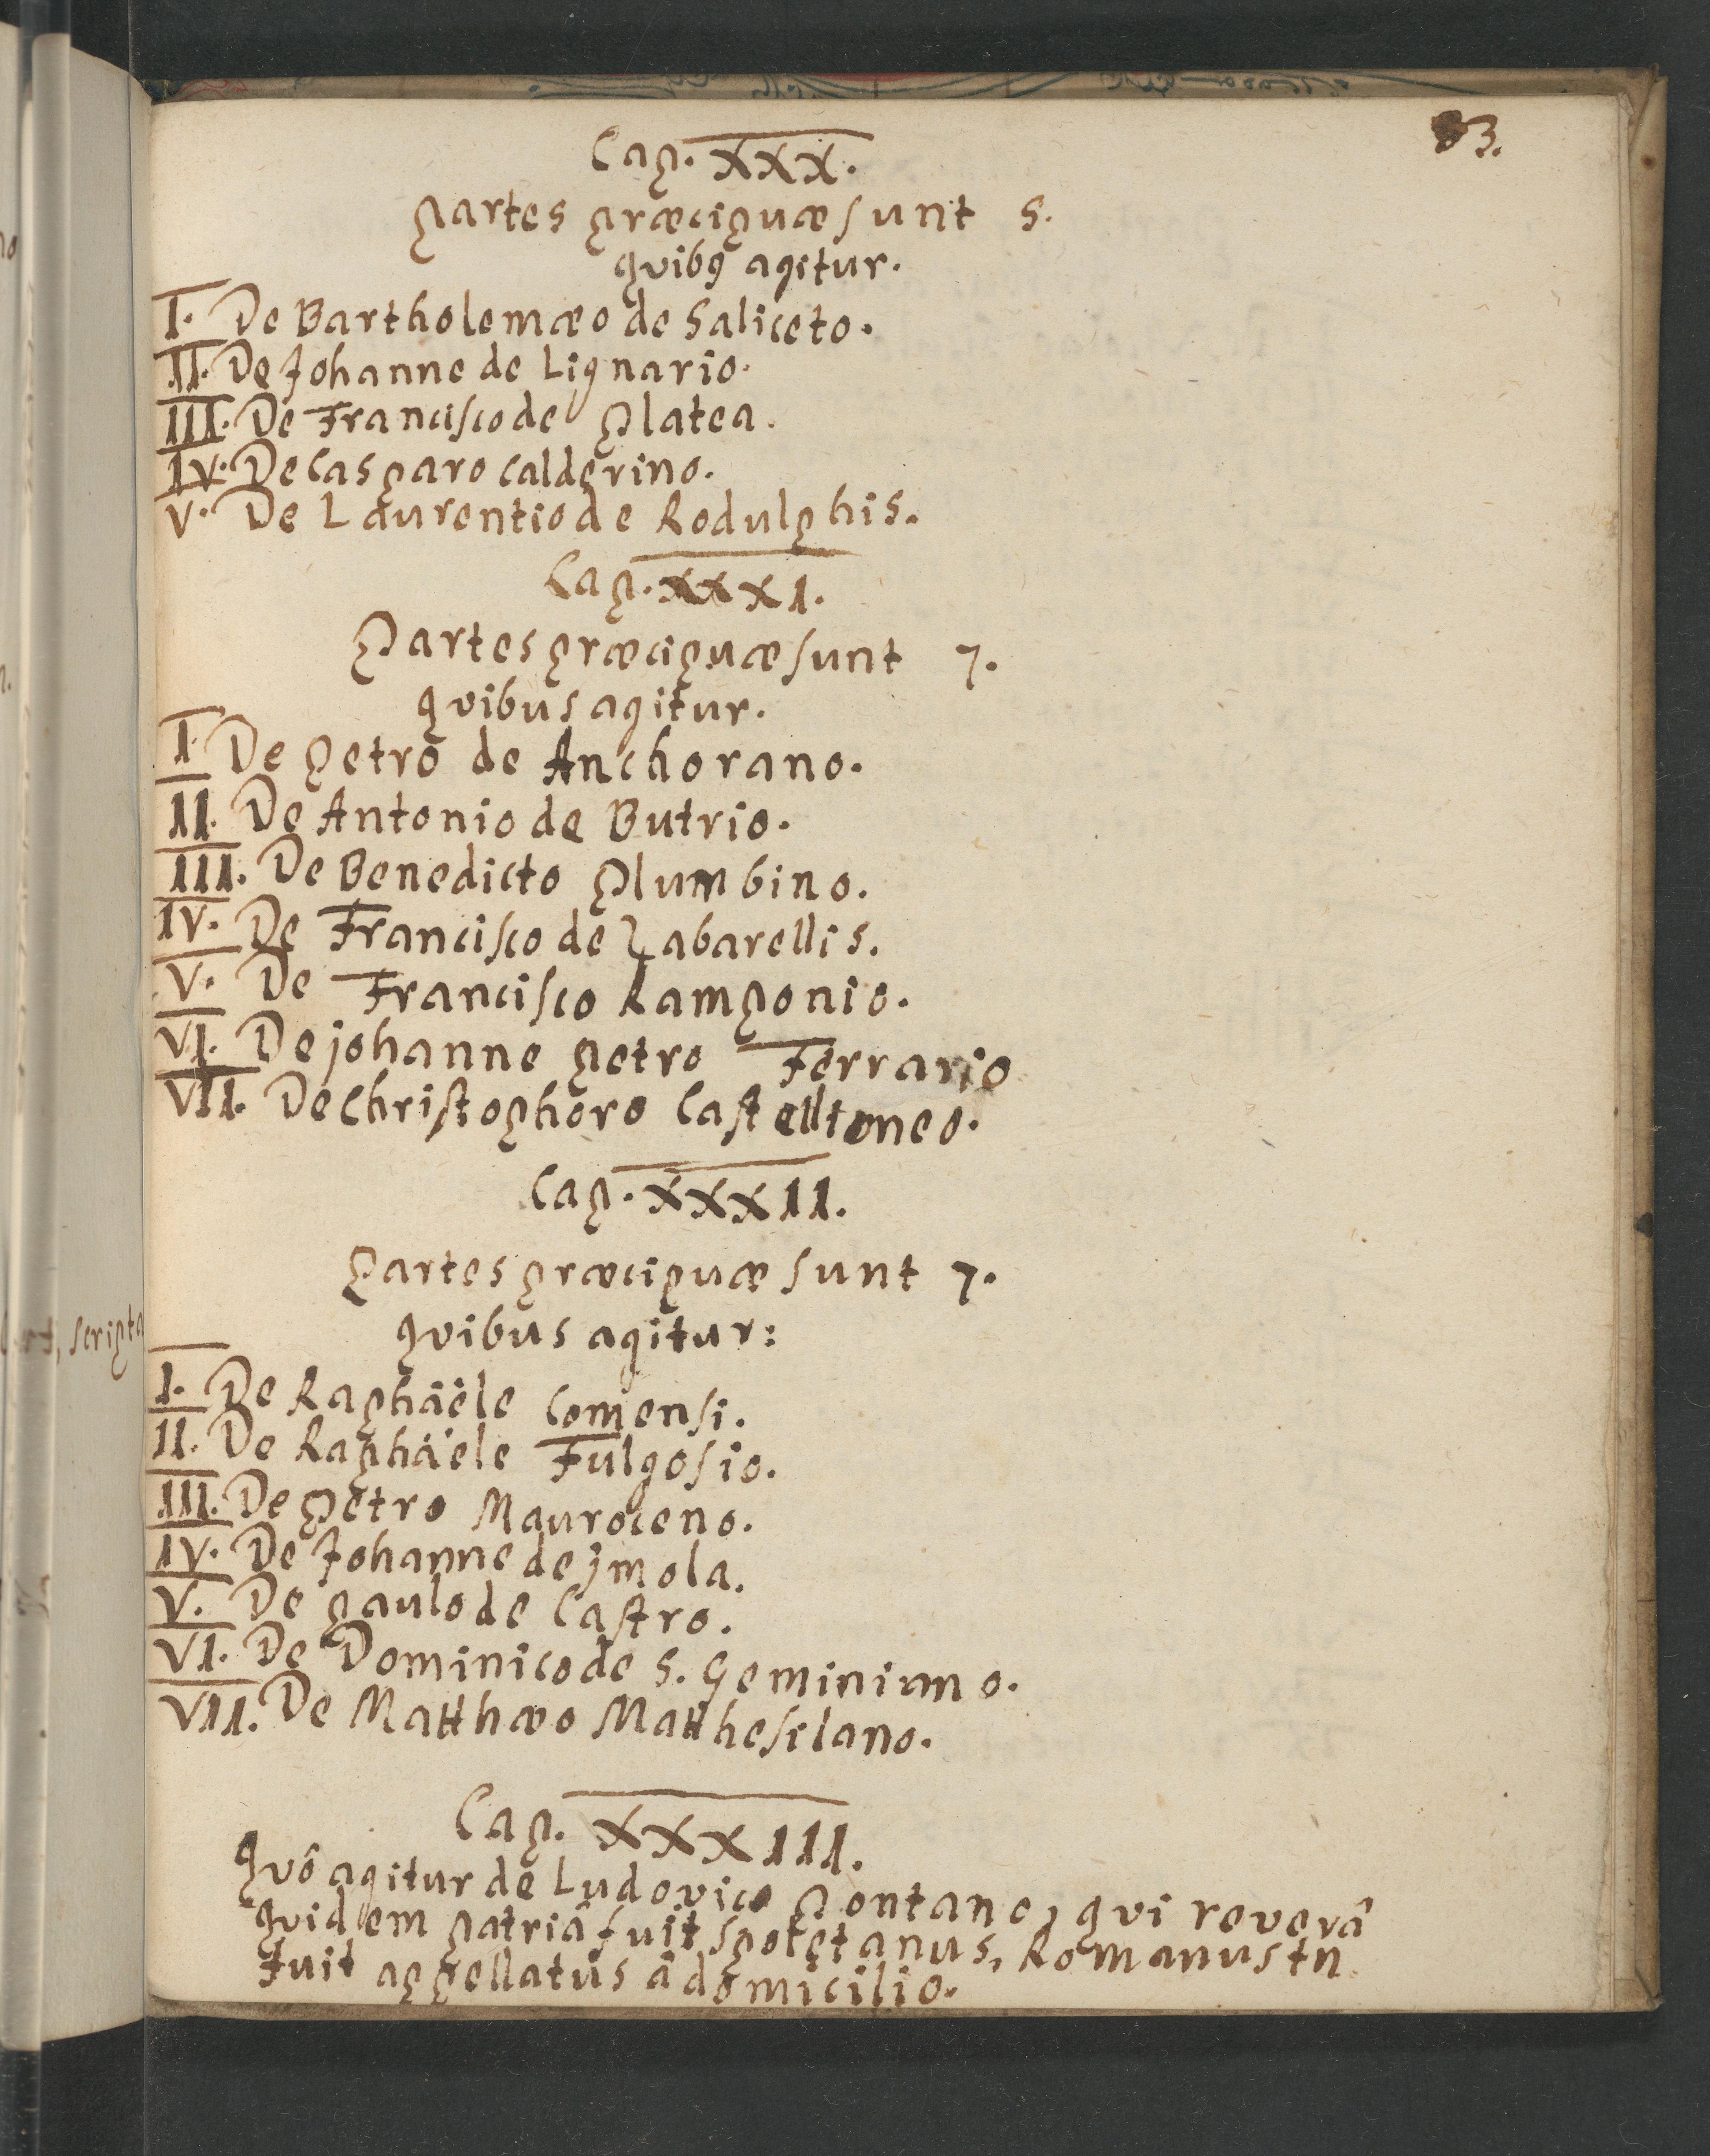 83.
Cap. XXX.
partes præcipuæ sunt 5.
quibꝰ agitur.
I. De Bartholemæo de Saliceto.
II. De Johanne de Lignario.
III. De Francisco de Platea.
IV. De Casparo Calderino.
V. De Laurentio de Rodulphis.
Cap. XXXI.
Partes præcipuæ sunt 7.
quibus agitur.
I. De Petro de Anchorano.
II. De Antonio de Butrio.
III. De Benedicto Plumbino.
IV. De Francisco de Zabarellis.
V. De Francisco Ramponio.
VI. De johanne petro Ferrario
VII. De Christophoro Castellioneo.
Cap. XXXII.
Partes præcipuæ sunt 7.
quibus agitur:
I. De Raphaële Comensi.
II. De Raphaële Fulgosio.
III. De Petro Mauroceno.
IV. De Johanne de jmola.
V. De paulo de Castro.
VI. De Dominico de S. Geminiano.
VII. De Matthæo Matthesilano.
Cap. XXXIII.
Quô agitur de Ludovico Pontano, qui reverâ
quidem patriâ fuit Spoletanus, Romanus tn
fuit appellatus â domicilio.
scripta